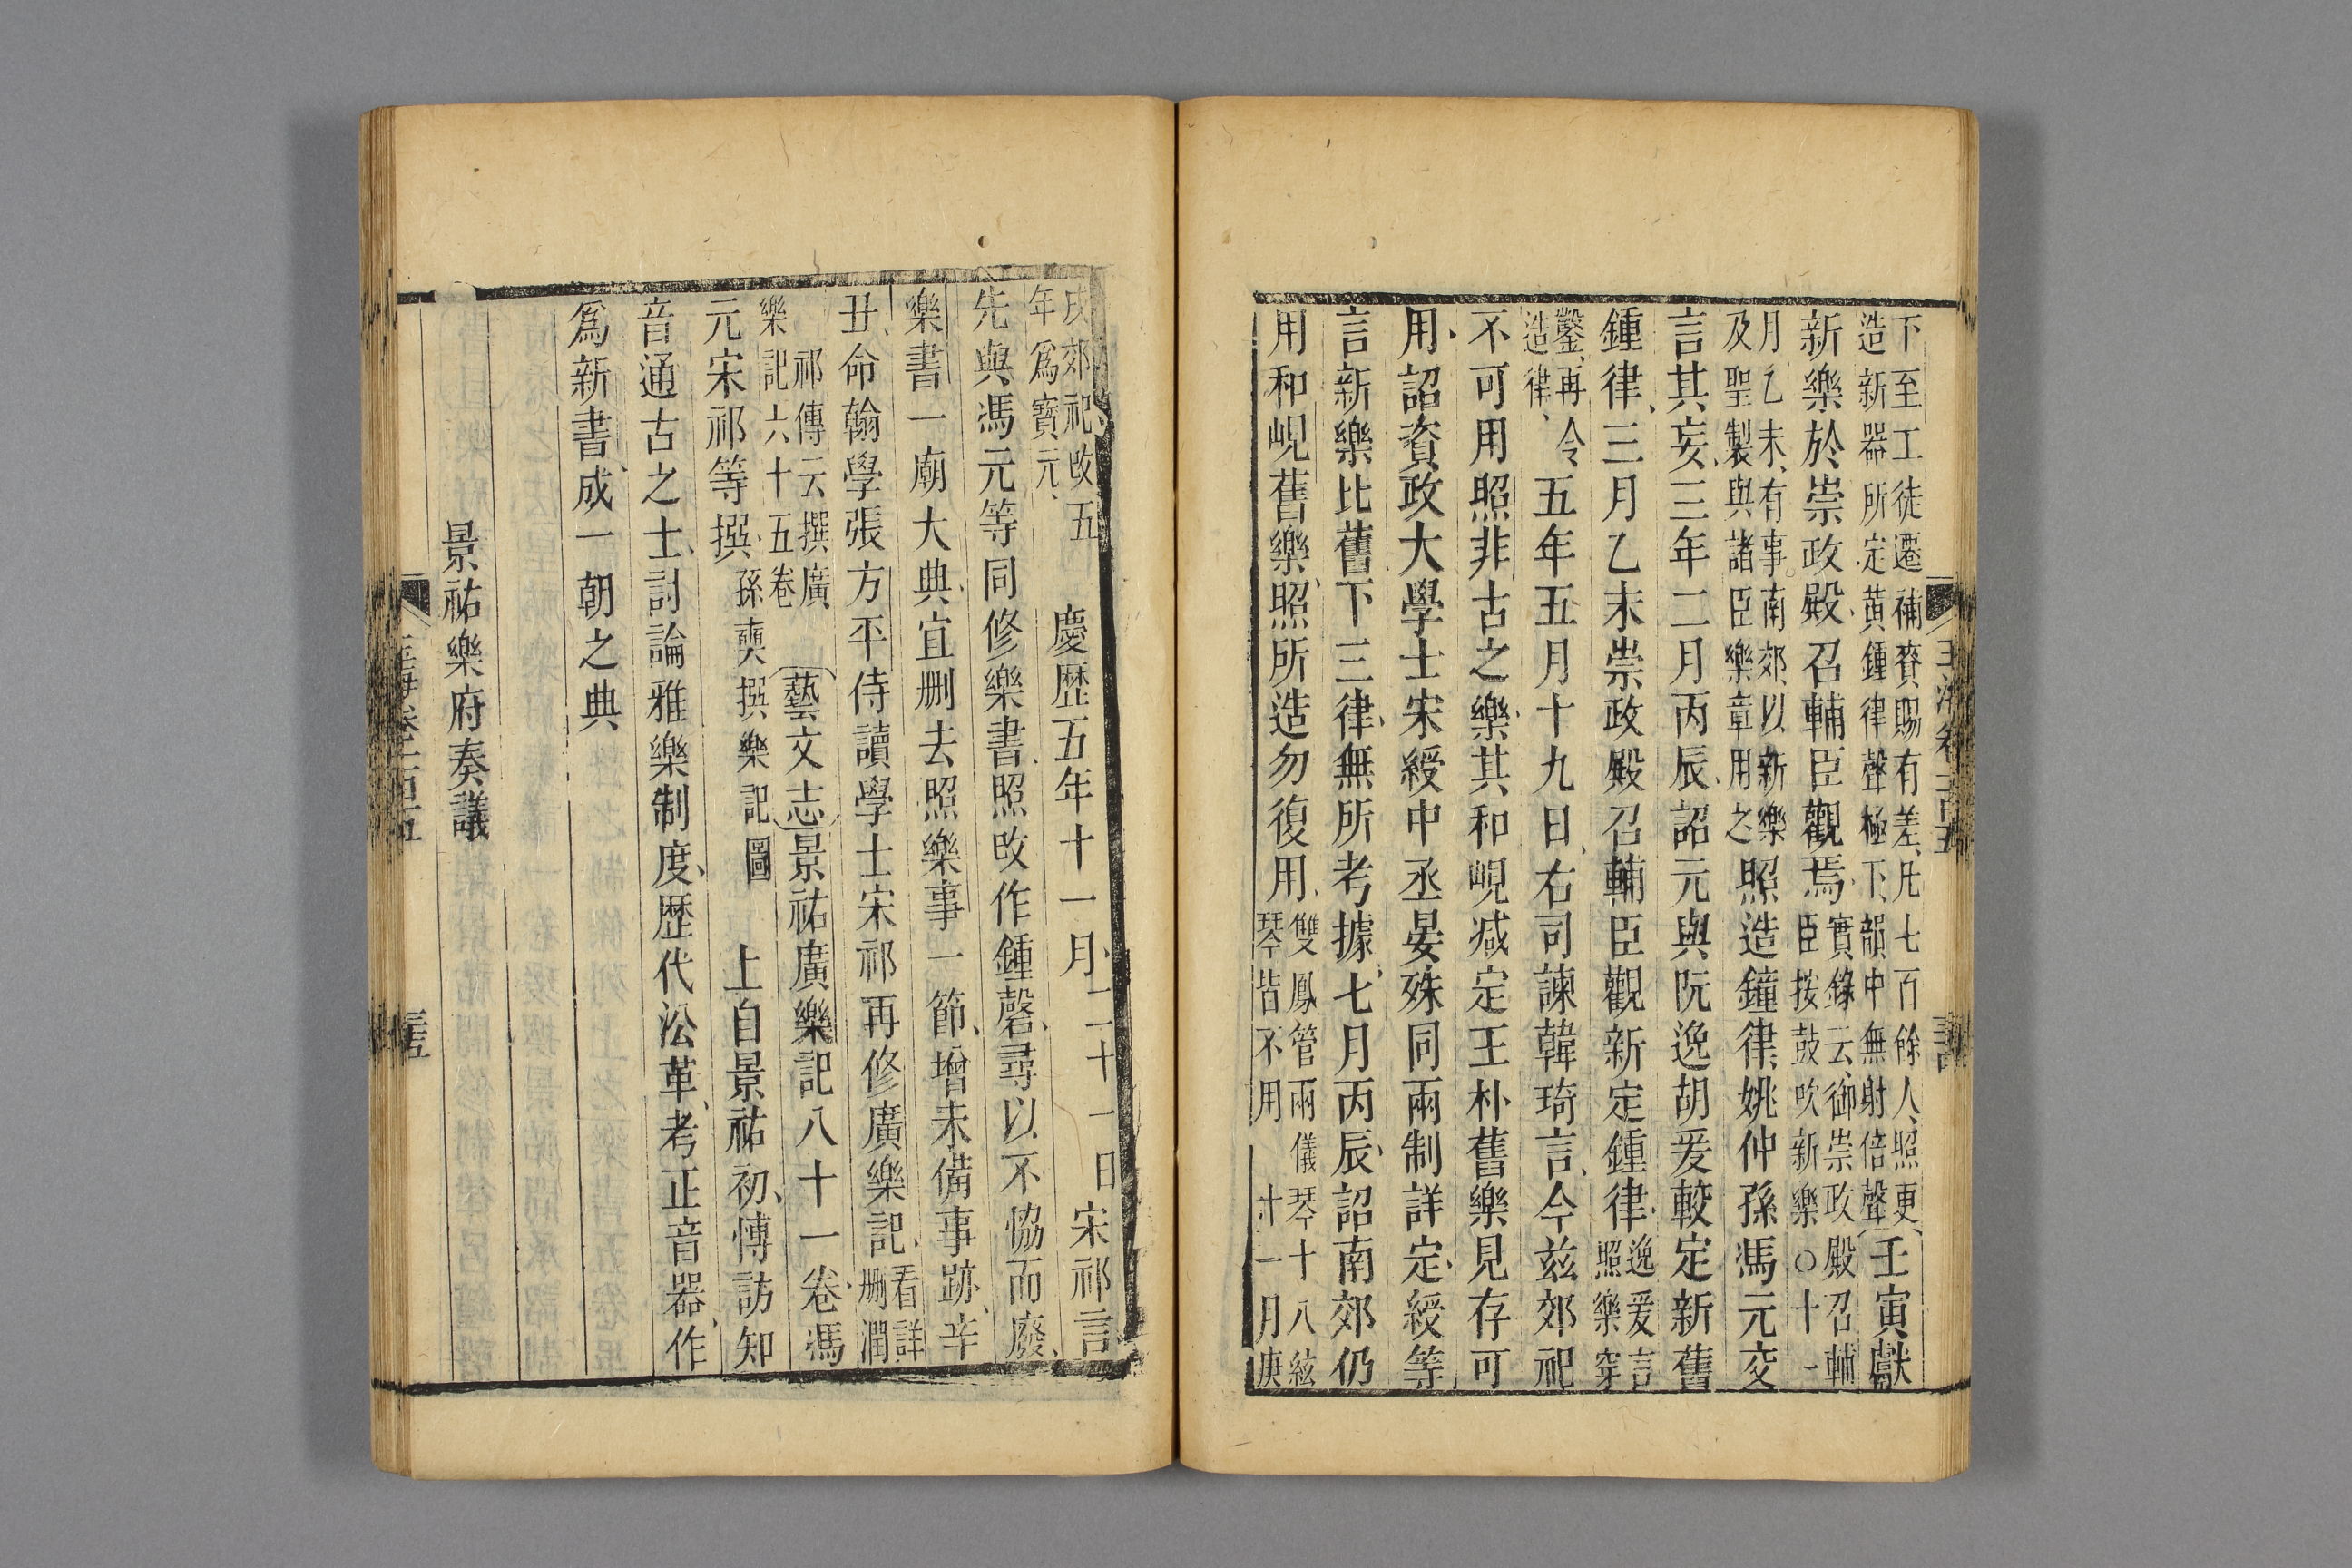 下至工徒遷補賚賜有差凡七百餘人照更
造新器所定黃鍾律聲極下韻中無射倍聲
壬寅獻
新樂於崇政殿召輔臣觀焉
實錄云御崇政殿召輔
臣按鼓吹新樂○十一
月乙未有事南郊以新樂
及聖製與諸臣樂章用之
照造鐘律姚仲孫馮元交
言其妄三年二月丙辰詔元與阮逸胡爰較定新舊
鍾律三月乙未崇政殿召輔臣觀新定鍾律
逸爰言
照樂穿
鑿再令
造律
五年五月十九日右司諫韓琦言今兹郊祀
不可用照非古之樂其和峴减定王朴舊樂見存可
用詔資政大學士宋綬中丞晏殊同兩制詳定綬等
言新樂比舊下三律無所考據七月丙辰詔南郊仍
用和峴舊樂照所造勿復用
雙鳳管兩儀琴十八絃
琴皆不用 十一月庚
戌郊祀改五
年爲寶元
慶歷五年十一月二十一日宋祁言
先與馮元等同修樂書照改作鍾磬尋以不恊而廢
樂書一廟大典宜刪去照樂事一節增未備事跡辛
丑命翰學張方平侍讀學士宋祁再修廣樂記
看詳
刪潤
祁傳云撰廣
樂記六十五卷
藝文志景祐廣樂記八十一卷馮
元宋祁等撰
孫奭撰樂記圖
上自景祐初愽訪知
音通古之士討論雅樂制度歷代㳂革考正音器作
爲新書成一朝之典
景祐樂府奏議